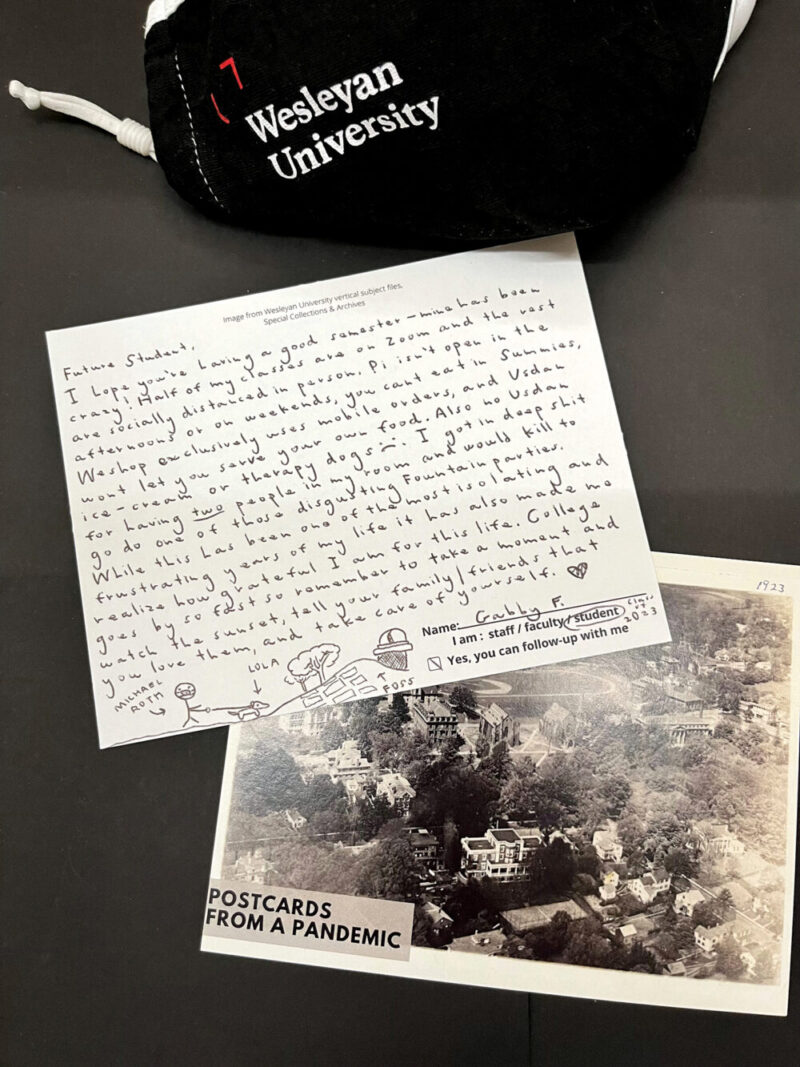 Wesleyan
University
Image from Wesleyan University vertical subject files,
Special Collections & Archives
Future Student,
I hope you're having a good semester – mine has been
crazy! Half of my classes are on Zoom and the rest
are socially distanced in person. Pi isn't open in the
afternoons or on weekends, you cant eat in Summies,
Weshop exclusively uses mobile orders, and Usdan
wont let you serve your own food. Also no Usdan
ice-cream or therapy dogs :(. I got in deep shit
for having two people in my room and would kill to
go do one of those disgusting Fountain parties.
While this has been one of the most isolating and
frustrating years of my life it has also made me
realize how grateful I am for this life. College
goes by so fast so remember to take a moment and
watch the sunset, tell your family/friends that
you love them, and take care of yourself. ♥
Name: Gabby F.
I am: staff / faculty / student class of 2023
Yes, you can follow-up with me
MICHAEL
ROTH
LOLA
FOSS
1923
POSTCARDS
FROM A PANDEMIC